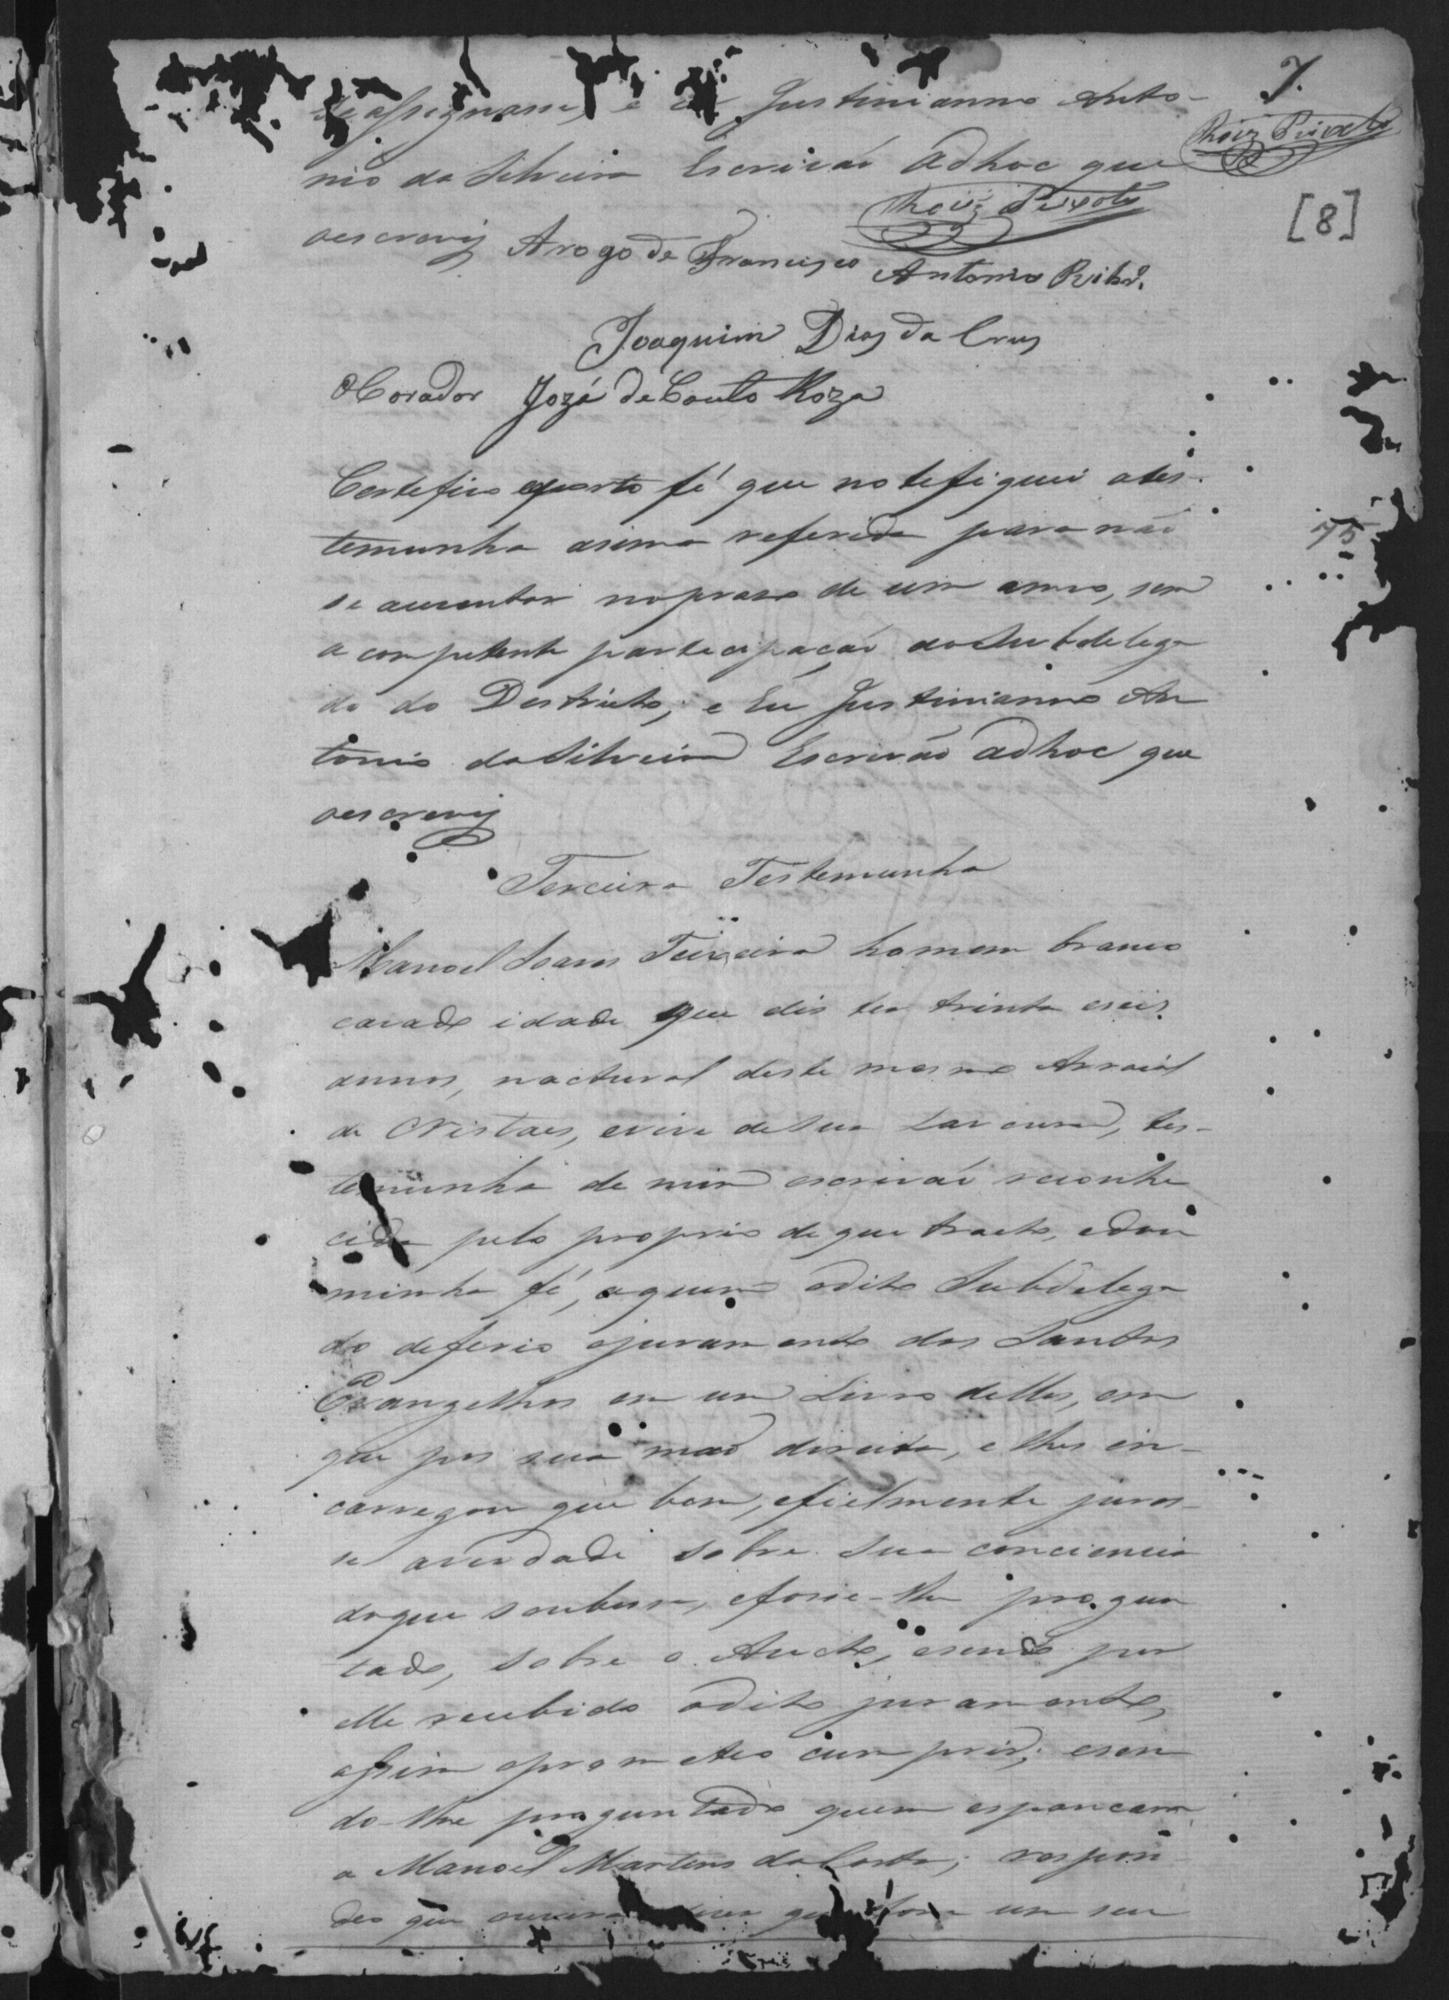 7.
Roiz Peixoto
[8]
se assignarão, e eu Justinianno Anto-
nio da Silveira Escrivaó adhoc que
oescrevij
Roiz Peixoto
Arogo de Francisco Antonio Ribr.º
Joaquim Dias da Crus
O Corador Jozé de Couto Roza
Certefico eporto fé que notefiquei ates-
temunha asima referida para não
75
se auzentar noprazo de um anno, sem
a competente partecipaçaó aoSubdelega
do do Destricto; e Eu Justinianno An
tonio daSilveira Escrivaó adhoc que
oescrevij
Terceira Testemunha
Manoel Soares Teixeira homem branco
cazado idade que dis ter trinta eseis
annos, nactural deste mesmo Arraial
de Cristaes, evive deSua Lavoura, tes-
temunha de mim escrivaó reconhe
cida pelo proprio de que tracto, edou
minha fé, aquem odito Subdelega
do deferio ojuramento dos Santos
Evangelhos em um Livro delles, em
que pos sua maó direita, e lhes en-
carregou que bem, efielmente juras-
se averdade sobre Sua conciencia
doque soubesse, efosse-lhe progun
tado, sobre o Aucto, esendo por
elle recebido odito juramento,
assim oprometteo cumprir; esen
do-lhe proguntado quem espancara
a Manoel Martins daCosta; respon
deo que ouvira que fora um seu